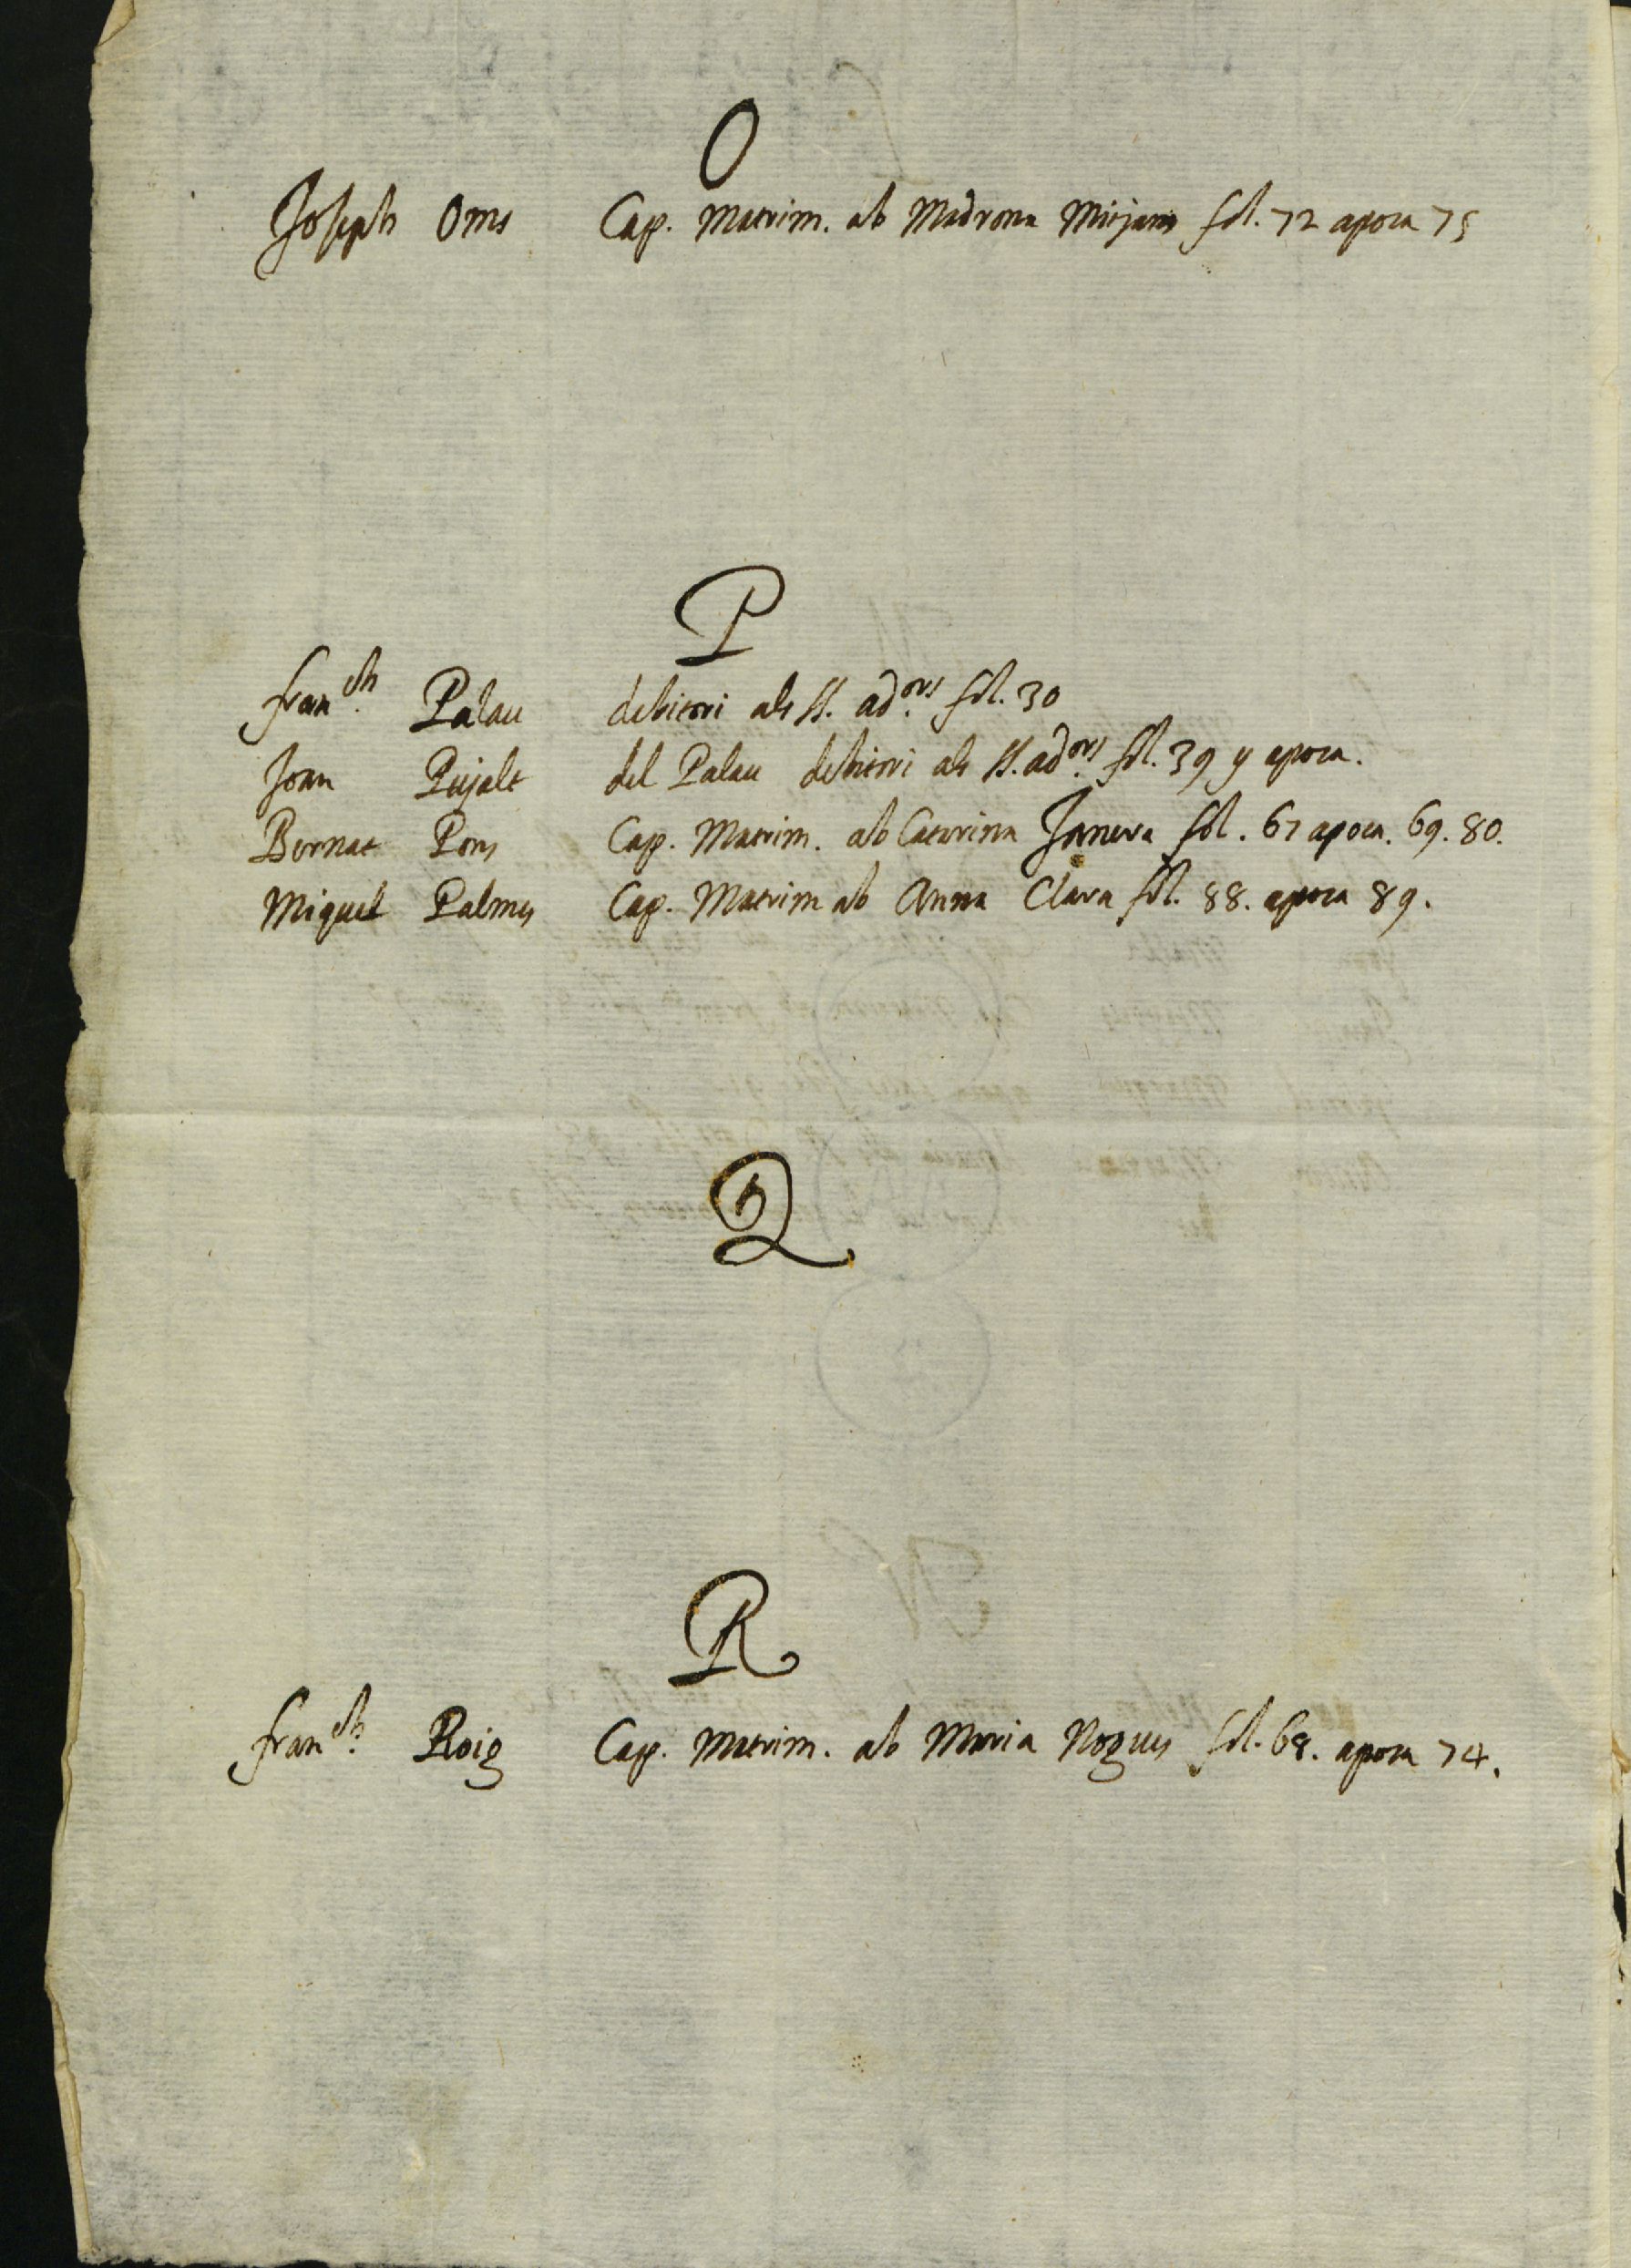 O
Joseph Oms Cap. Matrim. ab Madrona Mitjans fol. 72 apoca 75
P
fran.ch Palau debitori als ss. ad.ors fol. 30
Joan Pujalt del Palau debitori als ss. ad.ors fol. 39 y apoca.
Bernat Pons Cap. Matrim. ab Catarina Janera fol. 67 apoca. 69. 80.
Miquel Palmes Cap. Matrim ab Anna Clara fol. 88. apoca 89.
Q
R
fran.ch Roig Cap. Matrim. ab Maria Nogues fol. 68. apoca 74.